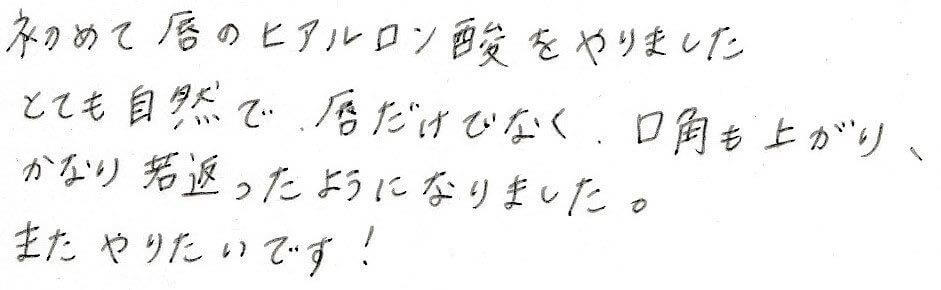 初めて唇のヒアルロン酸をやりました
とても自然で、唇だけでなく、口角も上がり、
かなり若返ったようになりました。
またやりたいです!